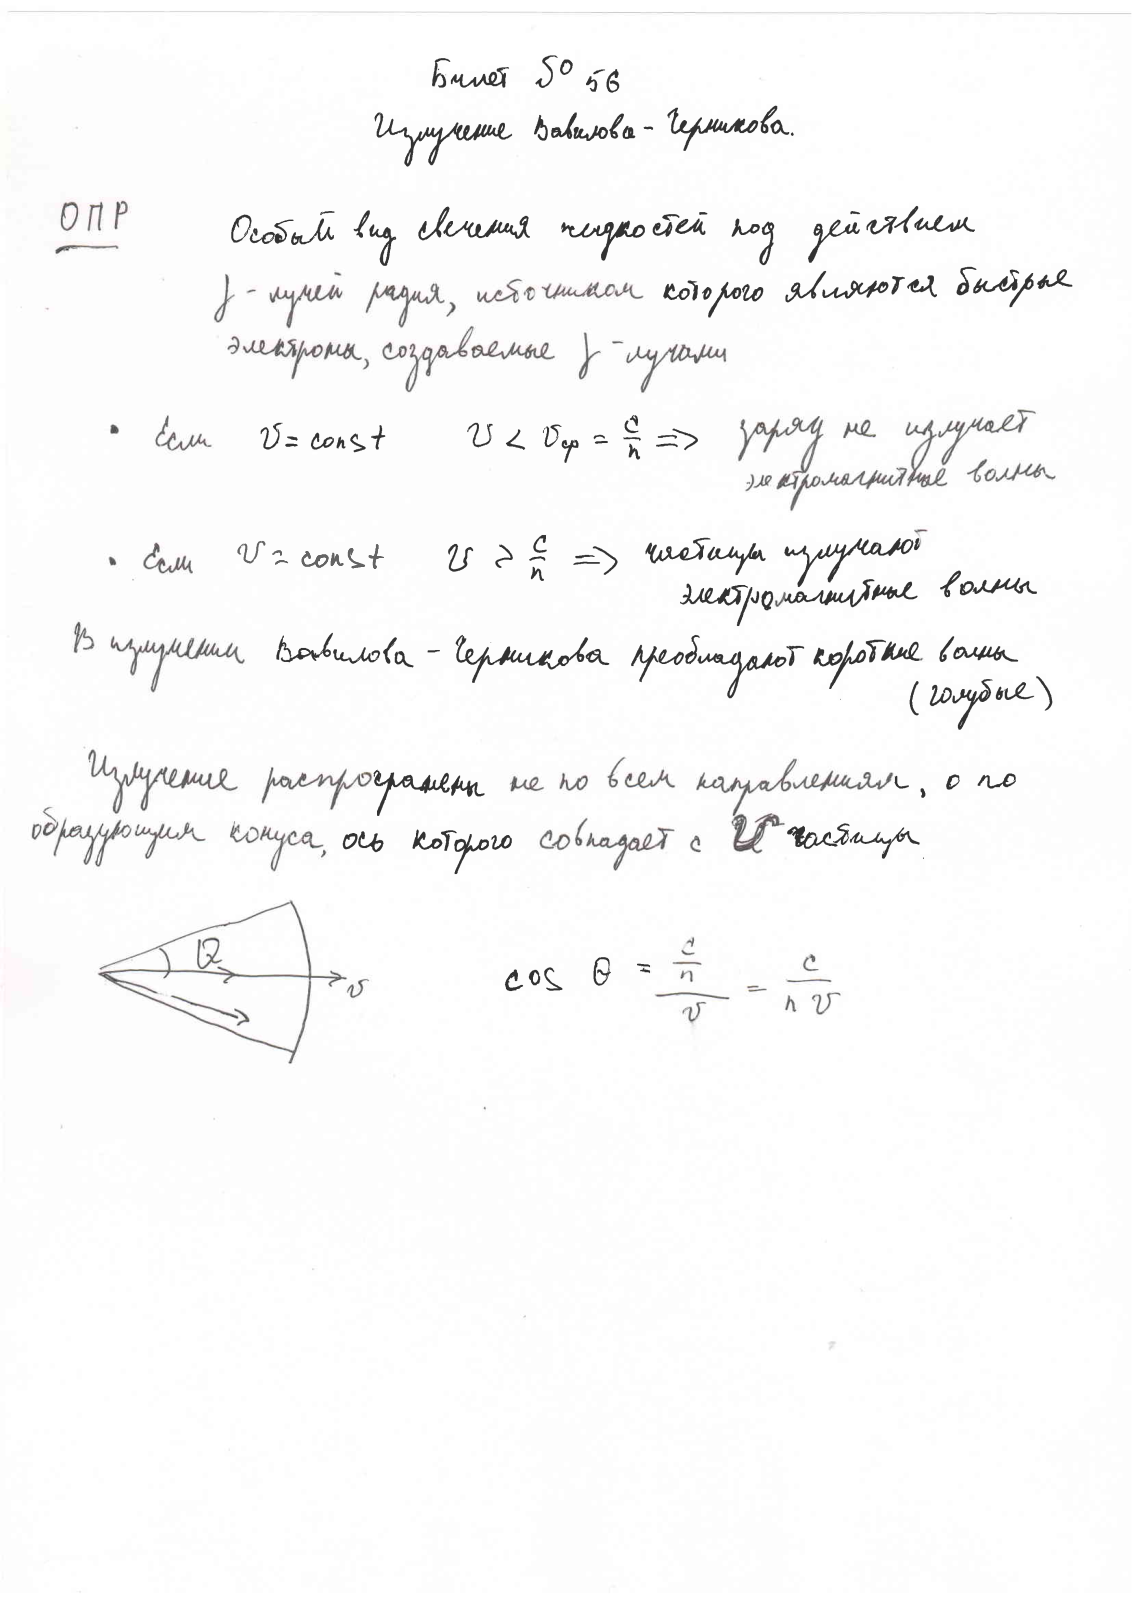 Билет № 56
Излучение Вавилова - Черникова.
ОПР Особый вид свечения жидкостей под действием
γ - лучей радия, источником которого являются быстрые
электроны, создаваемые γ - лучами
• Если v = const v < vср = c/n => заряд не излучает
электромагнитные волны
• Если v = const v > c/n => частицы излучают
электромагнитные волны
В излучении Вавилова - Черникова преобладают короткие волны
(голубые)
Излучение распространены не по всем направлениям, о по
образующим конуса, ось которого совпадает с v частицы
θ v
cos θ = (c/n)/v = c/(n v)